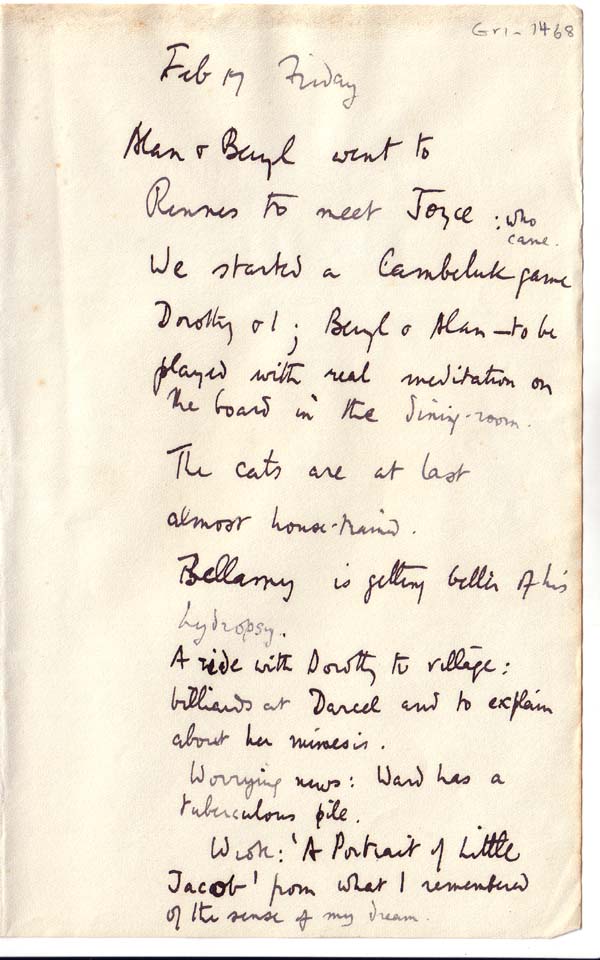 Gri - 1468
Feb 17 Friday
Alan & Beryl went to
Rennes to meet Joyce : who
came.
We started a Cambeluk game
Dorothy & I ; Beryl & Alan – to be
played with real meditation on
the board in the dining-room.
The cats are at last
almost house-trained.
Bellamy is getting better of his
hydropsy.
A ride with Dorothy to village:
billiards at Darcel and to explain
about her mimesis.
Worrying news: Ward has a
tuberculous pile.
Wrote: 'A Portrait of Little
Jacob' from what I remembered
of the sense of my dream.